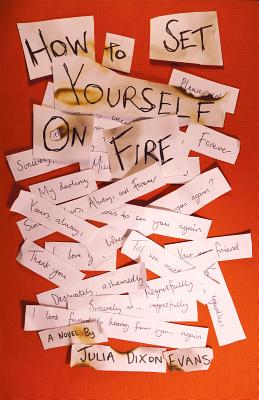 How to Set
Yourself
On Fire
Please
Forever
Sincerely,
My darling
Always and Forever
again?
Yours always,
to see you again
I love
Till we meet
Your friend
Thank you
Desperately, ashamedly
Regrettably
Sincerely regretfully
I look forward hearing from you again
A Novel By
Julia Dixon Evans